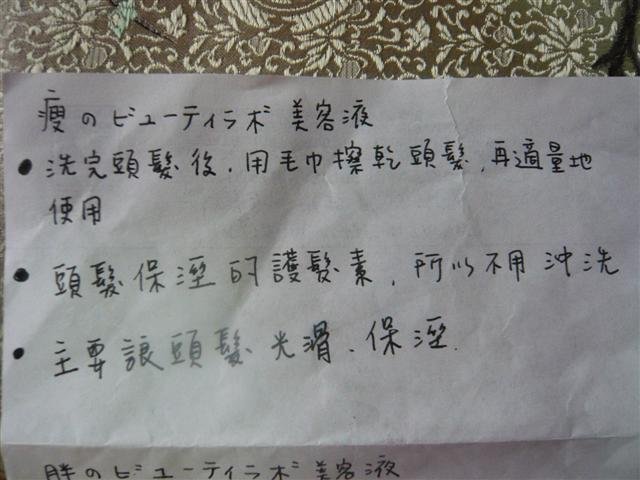 瘦のビューティラボ 美容液
●洗完頭髮後、用毛巾擦乾頭髮,再適量地
使用
●頭髮保溼的護髮素,所以不用沖洗
●主要讓頭髮光滑、保溼.
胖のビューティラボ 美容液